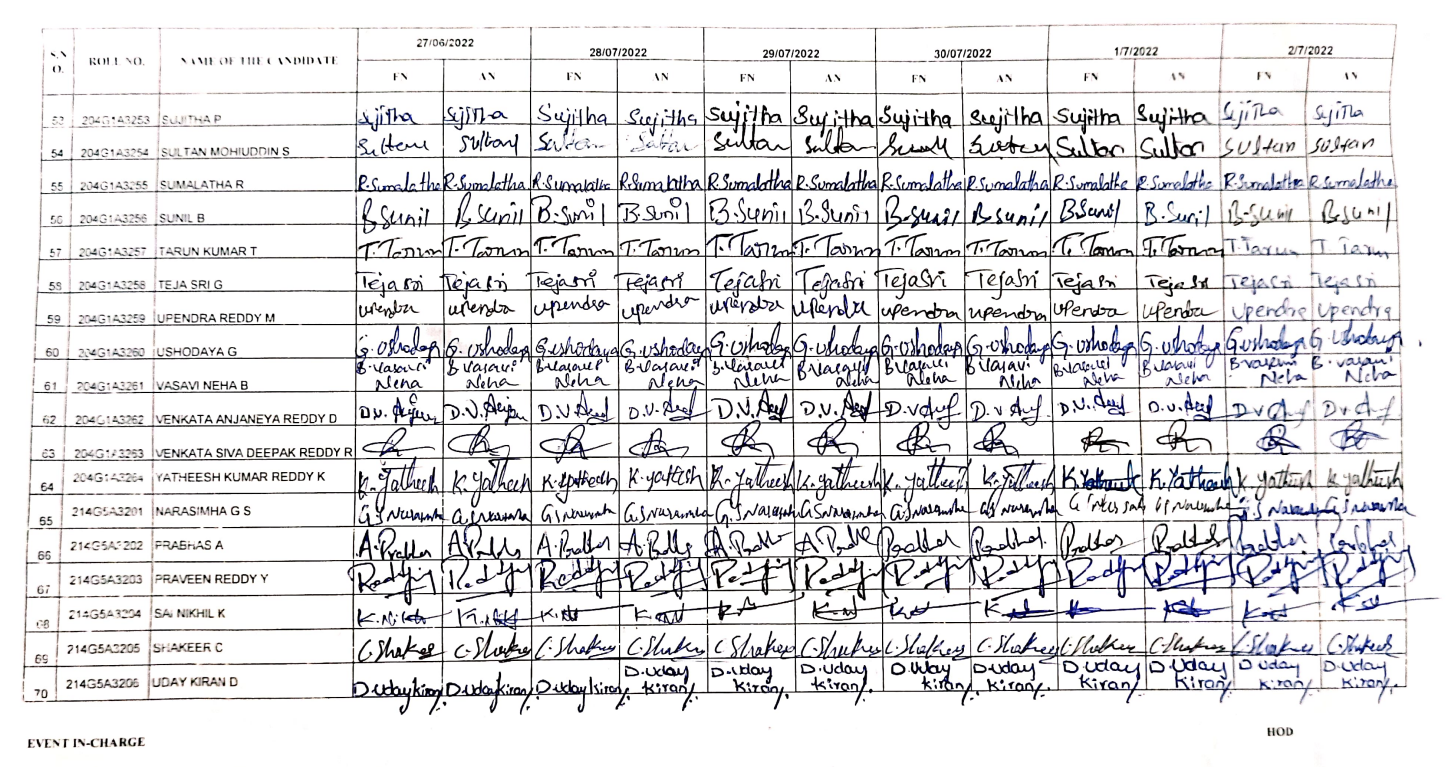 S.N O. ROLL NO. NAME OF THE CANDIDATE 27/06/2022 28/07/2022 29/07/2022 30/07/2022 1/7/2022 2/7/2022
FN AN FN AN FN AN FN AN FN AN FN AN
53 204G1A3253 SUJITHA P Sujitha Sujitha Sujitha Sujitha Sujitha Sujitha Sujitha Sujitha Sujitha Sujitha Sujitha Sujitha
54 204G1A3254 SULTAN MOHIUDDIN S Sultan Sultan Sultan Sultan Sultan Sultan Sultan Sultan Sultan
55 204G1A3255 SUMALATHA R R.Sumalatha R.Sumalatha R.Sumalatha R.Sumalatha R.Sumalatha R.Sumalatha R.Sumalatha R.Sumalatha R.Sumalatha R.Sumalatha R.Sumalatha R.Sumalatha
56 204G1A3256 SUNIL B B.Sunil B.Sunil B.Sunil B.Sunil B.Sunil B.Sunil B.Sunil B.Sunil B.Sunil B.Sunil B.Sunil B.Sunil
57 204G1A3257 TARUN KUMAR T T.Tarun T.Tarun T.Tarun T.Tarun T.Tarun T.Tarun T.Tarun T.Tarun T.Tarun T.Tarun T.Tarun T.Tarun
58 204G1A3258 TEJA SRI G TejaSri TejaSri TejaSri TejaSri TejaSri TejaSri TejaSri TejaSri TejaSri TejaSri TejaSri TejaSri
59 204G1A3259 UPENDRA REDDY M upendra upendra upendra upendra upendra upendra upendra upendra upendra upendra Upendra Upendra
60 204G1A3260 USHODAYA G G.Ushodaya G.Ushodaya G.Ushodaya G.Ushodaya G.Ushodaya G.Ushodaya G.Ushodaya G.Ushodaya G.Ushodaya G.Ushodaya G.Ushodaya G.Ushodaya
B.Vasavi B.Vasavi B.Vasavi B.Vasavi B.Vasavi B.Vasavi B.Vasavi B.Vasavi B.Vasavi B.Vasavi B.Vasavi B.Vasavi
61 204G1A3261 VASAVI NEHA B Neha Neha Neha Neha Neha Neha Neha Neha Neha Neha Neha Neha
62 204G1A3262 VENKATA ANJANEYA REDDY D D.V. D.V. D.V. D.V. D.V. D.V. D.V. D.V. D.V. D.V. D.V. D.V.
63 204G1A3263 VENKATA SIVA DEEPAK REDDY R
64 204G1A3264 YATHEESH KUMAR REDDY K K.Yatheesh K.Yatheesh K.Yatheesh K.Yatheesh K.Yatheesh K.Yatheesh K.Yatheesh K.Yatheesh K.Yatheesh K.Yatheesh K.Yatheesh
65 214G5A3201 NARASIMHA G S G.S Narasimha G.S Narasimha G.S Narasimha G.S Narasimha G.S Narasimha G.S Narasimha G.S Narasimha G.S Narasimha G.S Narasimha G.S Narasimha G.S Narasimha
66 214G5A3202 PRABHAS A A.Prabhas A.Prabhas A.Prabhas Prabhas Prabhas Prabhas Prabhas Prabhas Prabhas
67 214G5A3203 PRAVEEN REDDY Y
68 214G5A3204 SAI NIKHIL K K.Nikhil
69 214G5A3205 SHAKEER C C.Shakeer C.Shakeer C.Shakeer C.Shakeer C.Shakeer C.Shakeer C.Shakeer C.Shakeer C.Shakeer C.Shakeer C.Shakeer C.Shakeer
D.Uday D.Uday D.Uday D.Uday D.Uday D.Uday D.Uday D.Uday D.Uday
70 214G5A3206 UDAY KIRAN D D.Udaykiran D.Udaykiran D.Udaykiran Kiran Kiran Kiran Kiran Kiran Kiran Kiran Kiran Kiran
EVENT IN-CHARGE HOD